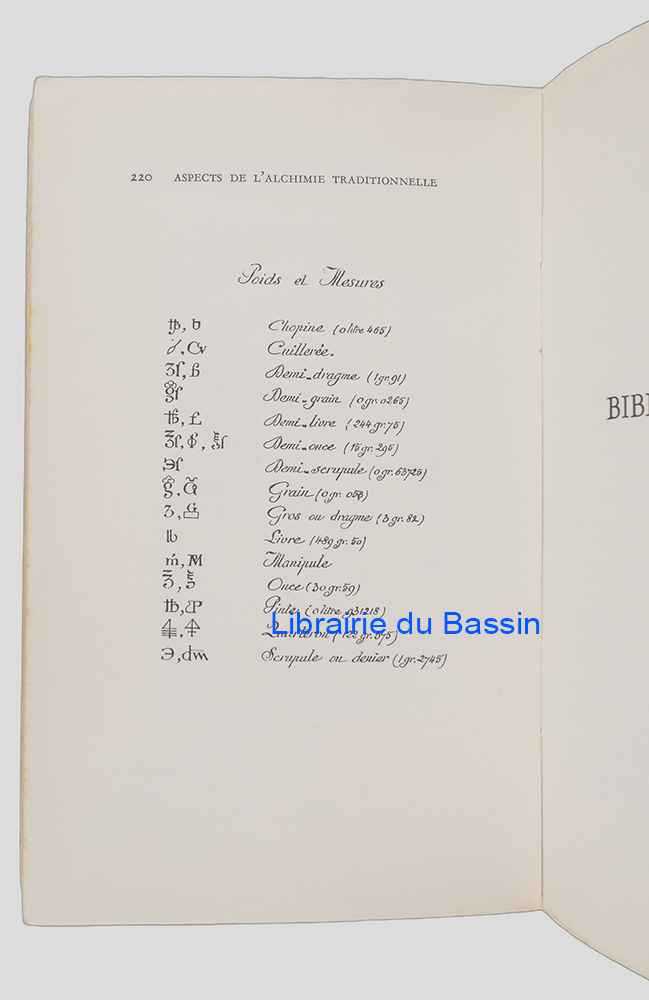 220 ASPECTS DE L'ALCHIMIE TRADITIONNELLE
Poids et Mesures
Chopine (0 litre 465)
Cuillerée.
Demi-dragme (1 gr. 91)
Demi-grain (0 gr. 0265)
Demi-livre (244 gr. 75)
Demi-once (15 gr. 295)
Demi-scrupule (0 gr. 63725)
Grain (0 gr. 053)
Gros ou dragme (3 gr. 82)
lb Livre (489 gr. 50)
Manipule
Once (30 gr. 59)
Pinte (0 litre 931218)
Quarteron (122 gr. 375)
Scrupule ou denier (1 gr. 2745)
Librairie du Bassin
BIB